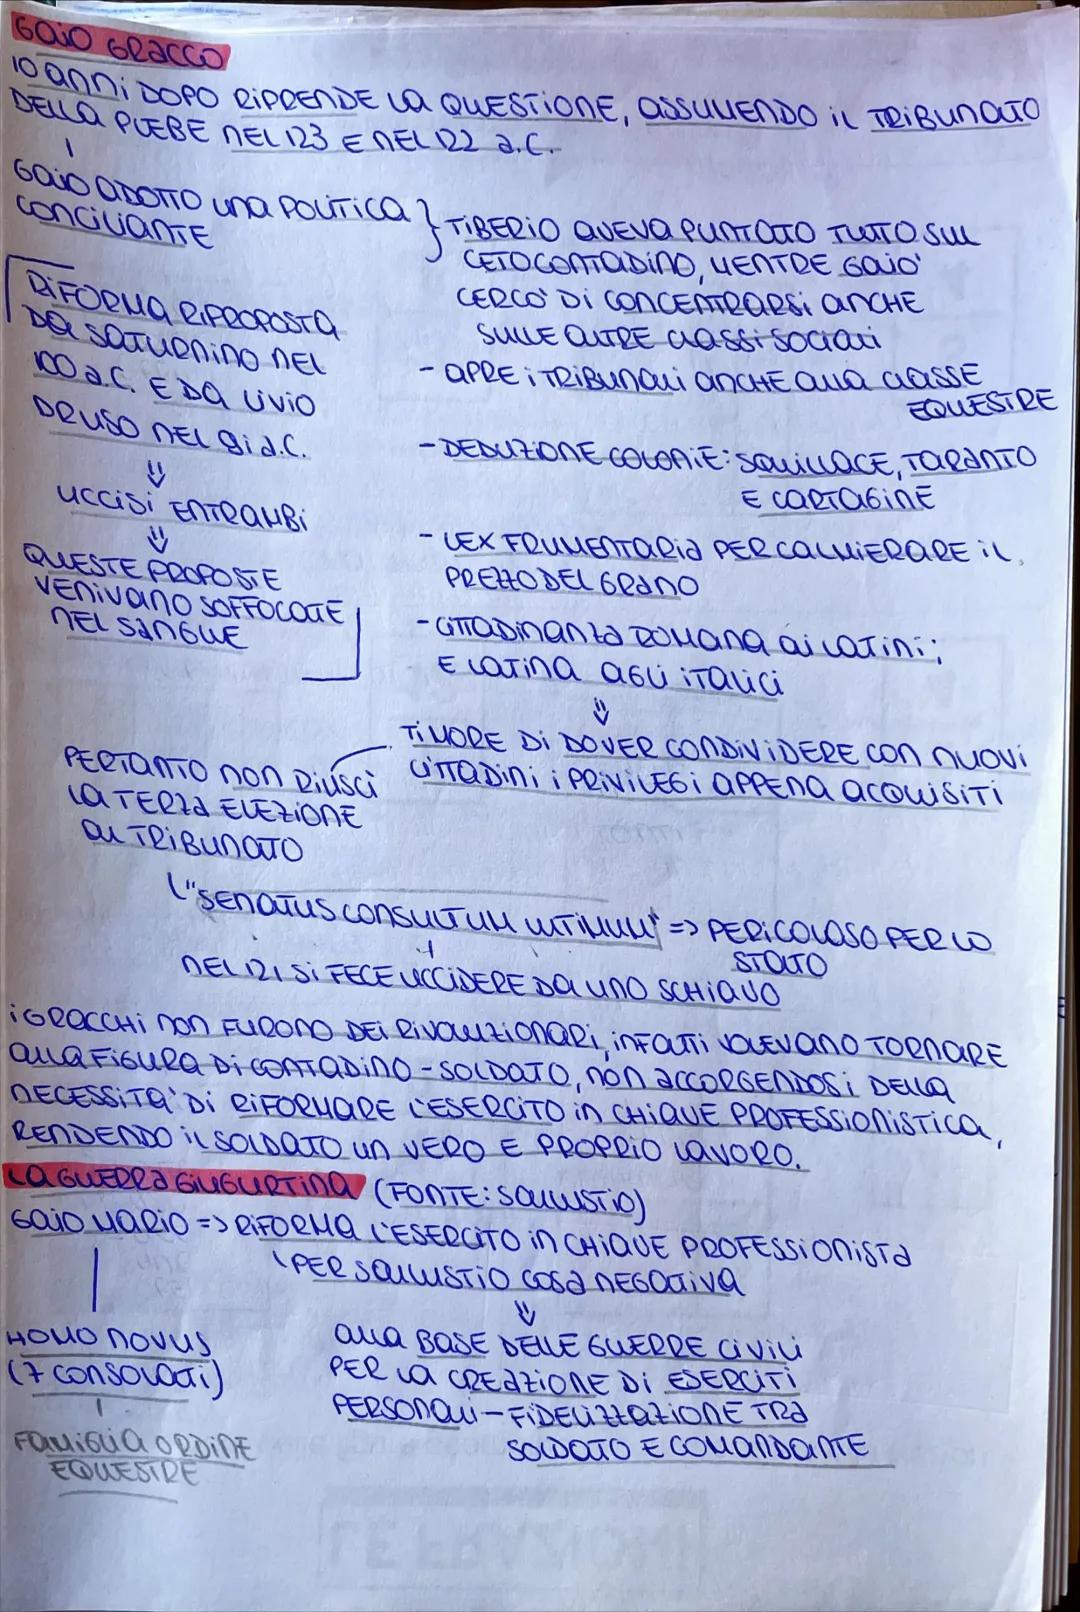 GAIO GRACCO
10 ANNI DOPO RIPRENDE LA QUESTIONE, ASSUMENDO IL TRIBUNATO
DELLA PLEBE NEL 123 E NEL 122 a.C.
GAIO ADOTTO UNA POLITICA
CONCILIANTE
} TIBERIO AVEVA PUNTATO TUTTO SUL
CETO CONTADINO, MENTRE GAIO'
CERCO' DI CONCENTRARSI ANCHE
SULLE ALTRE CLASSI SOCIALI
- APRE I TRIBUNALI ANCHE ALLA CLASSE
EQUESTRE
- DEDUZIONE COLONIE: SQUILLACE, TARANTO
E CARTAGINE
- LEX FRUMENTARIA PER CALMIERARE IL
PREZZO DEL GRANO
- CITTADINANZA ROMANA AI LATINI;
E LATINA AGLI ITALICI
⇓
TIMORE DI DOVER CONDIVIDERE CON NUOVI
CITTADINI I PRIVILEGI APPENA ACQUISITI
RIFORMA RIPROPOSTA
DA SATURNINO NEL
100 a.C. E DA LIVIO
DRUSO NEL 91 a.C.
⇓
UCCISI ENTRAMBI
⇓
QUESTE PROPOSTE
VENIVANO SOFFOCATE
NEL SANGUE
PERTANTO NON RIUSCÌ
LA TERZA ELEZIONE
AL TRIBUNATO
"SENATUS CONSULTUM ULTIMUM" => PERICOLOSO PER LO
STATO
NEL 121 SI FECE UCCIDERE DA UNO SCHIAVO
I GRACCHI NON FURONO DEI RIVOLUZIONARI, INFATTI VOLEVANO TORNARE
ALLA FIGURA DI CONTADINO-SOLDATO, NON ACCORGENDOSI DELLA
NECESSITA' DI RIFORMARE L'ESERCITO IN CHIAVE PROFESSIONISTICA,
RENDENDO IL SOLDATO UN VERO E PROPRIO LAVORO.
LA GUERRA GIUGURTINA (FONTE: SALLUSTIO)
GAIO MARIO => RIFORMA L'ESERCITO IN CHIAVE PROFESSIONISTA
PER SALLUSTIO COSA NEGATIVA
⇓
HOMO NOVUS
(7 CONSOLATI)
FAMIGLIA ORDINE
EQUESTRE
ALLA BASE DELLE GUERRE CIVILI
PER LA CREAZIONE DI ESERCITI
PERSONALI - FIDELIZZAZIONE TRA
SOLDATO E COMANDANTE